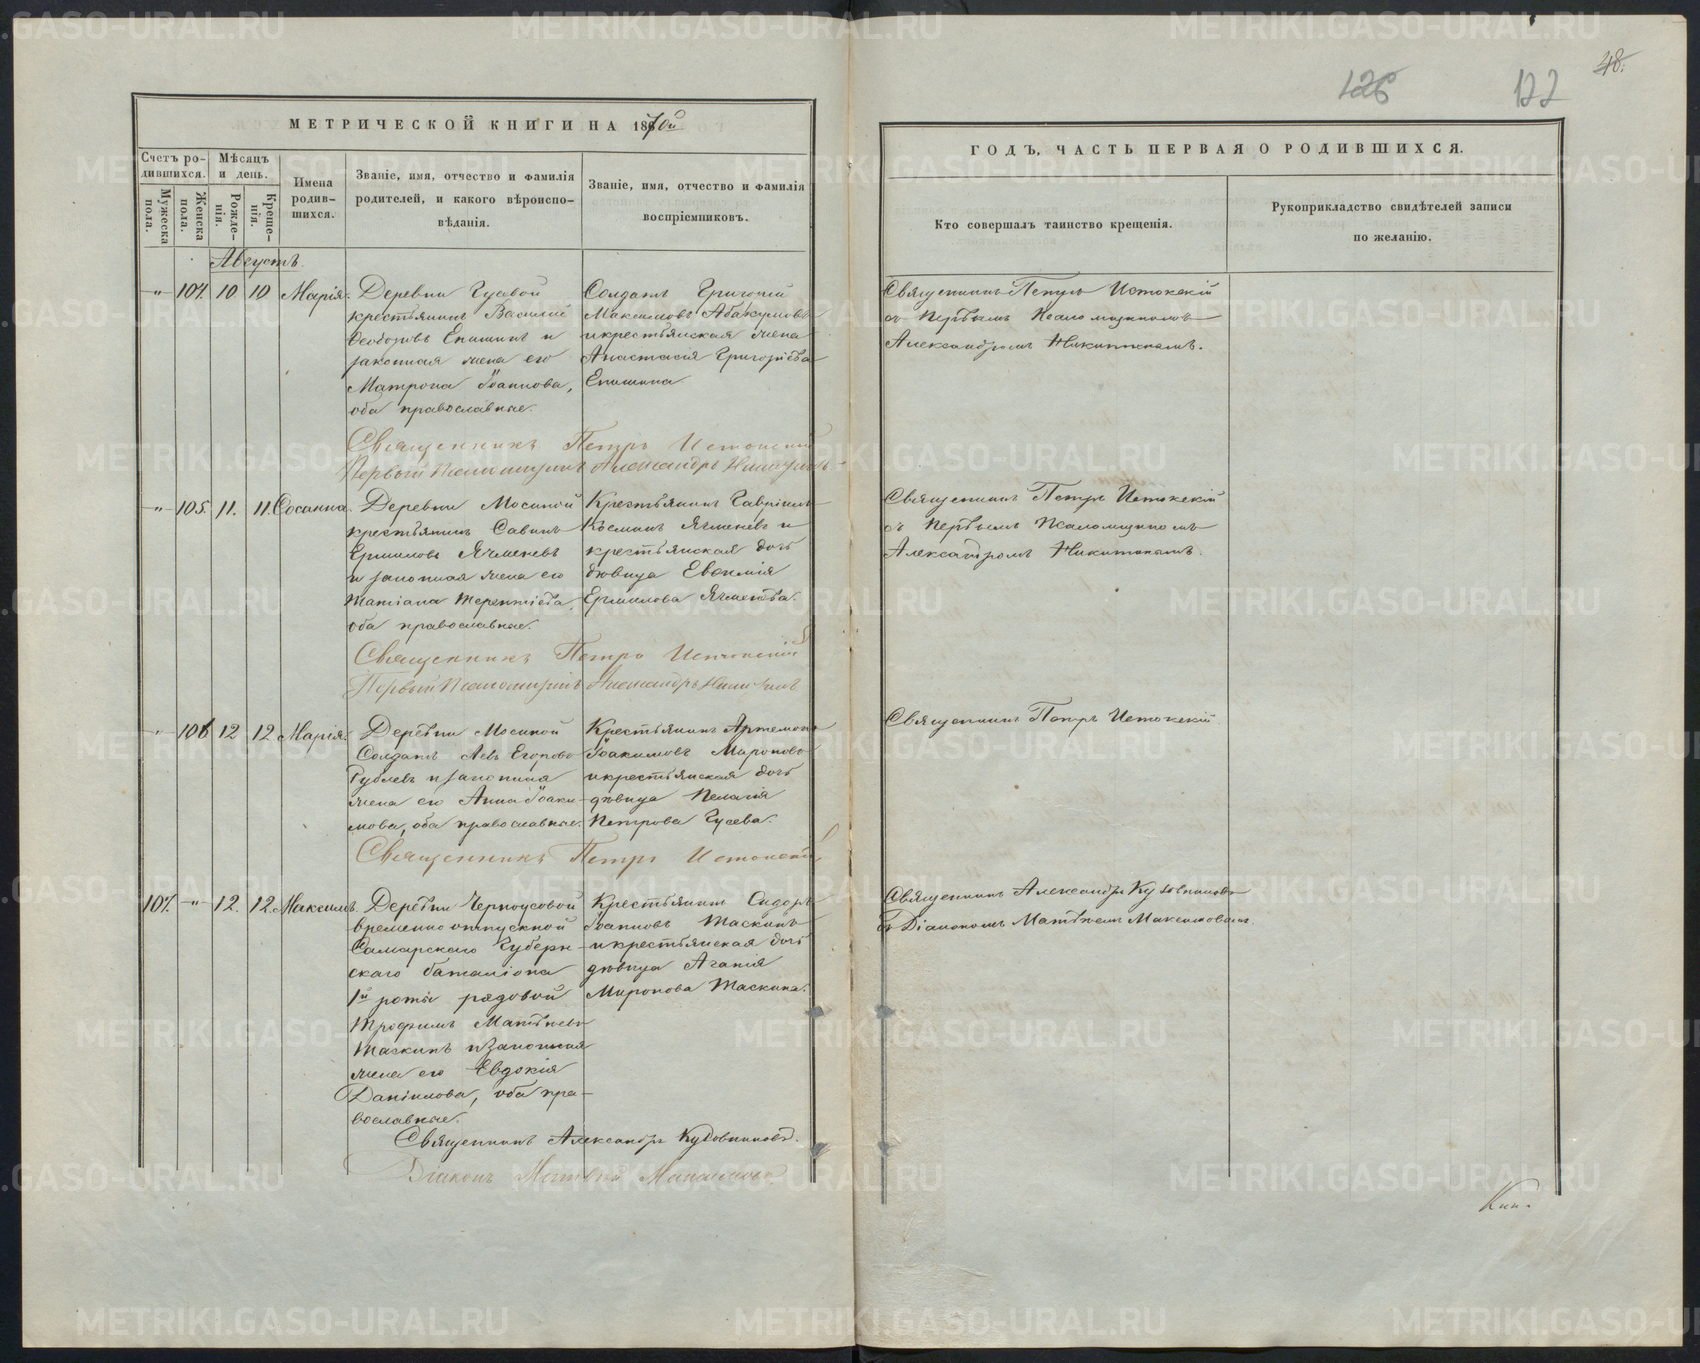 48.
126
122
МЕТРИЧЕСКОЙ КНИГИ НА 1870й
Счетъ родившихся.
Мѣсяцъ и день.
Имена родившихся.
Званіе, имя, отчество и фамилія родителей, и какого вѣроисповѣданія.
Званіе, имя, отчество и фамилія воспріемниковъ.
Мужеска пола.
Женска пола.
Рожденія.
Крещенія.
Августъ
" 104. 10 10 Марія.
Деревни Гусевой
крестьянинъ Василій
Ѳеодоровъ Епишинъ и
законная жена его
Матрона Іоаннова,
оба православные.
Солдатъ Григорій
Максимовъ Абакумовъ
и крестьянская жена
Анастасія Григорьева
Епишина
Священникъ Петръ Истокскій
Первый Псаломщикъ Александръ Никитинъ
" 105. 11. 11. Сосанна.
Деревни Мосиной
крестьянинъ Савинъ
Ермиловъ Ячменевъ
и законная жена его
Татіана Терентіева,
оба православные.
Крестьянинъ Гавріилъ
Косминъ Ячменевъ и
крестьянская дочь
дѣвица Евѳимія
Ермилова Ячменева.
Священникъ Петръ Истокскій
Первый Псаломщикъ Александръ Никитинъ
" 106 12 12 Марія.
Деревни Мосиной
Солдатъ Левъ Егоровъ
Рублевъ и законная
жена его Анна Іоаки-
мова, оба православные.
Крестьянинъ Артемонъ
Іоакимовъ Мироновъ
и крестьянская дочь
дѣвица Пелагія
Петрова Гусева.
Священникъ Петръ Истокскій
107. " 12. 12. Максимъ.
Деревни Черноусовой
временно отпускной
Самарскаго Губерн-
скаго баталіона
1й роты рядовой
Трофимъ Матвѣевъ
Таскинъ и законная
жена его Евдокія
Даніилова, оба пра-
вославные.
Крестьянинъ Сидоръ
Іоанновъ Таскинъ
и крестьянская дочь
дѣвица Агапія
Миронова Таскина.
Священникъ Александръ Кудовниковъ.
Діаконъ Матвѣй Максимовъ.
ГОДЪ, ЧАСТЬ ПЕРВАЯ О РОДИВШИХСЯ.
Кто совершалъ таинство крещенія.
Рукоприкладство свидѣтелей записи по желанію.
Священникъ Петръ Истокскій
съ Первымъ Псаломщикомъ
Александромъ Никитинымъ.
Священникъ Петръ Истокскій
съ Первымъ Псаломщикомъ
Александромъ Никитинымъ.
Священникъ Петръ Истокскій.
Священникъ Александръ Кудовниковъ
съ Діакономъ Матвѣемъ Максимовымъ.
METRIKI.GASO-URAL.RU